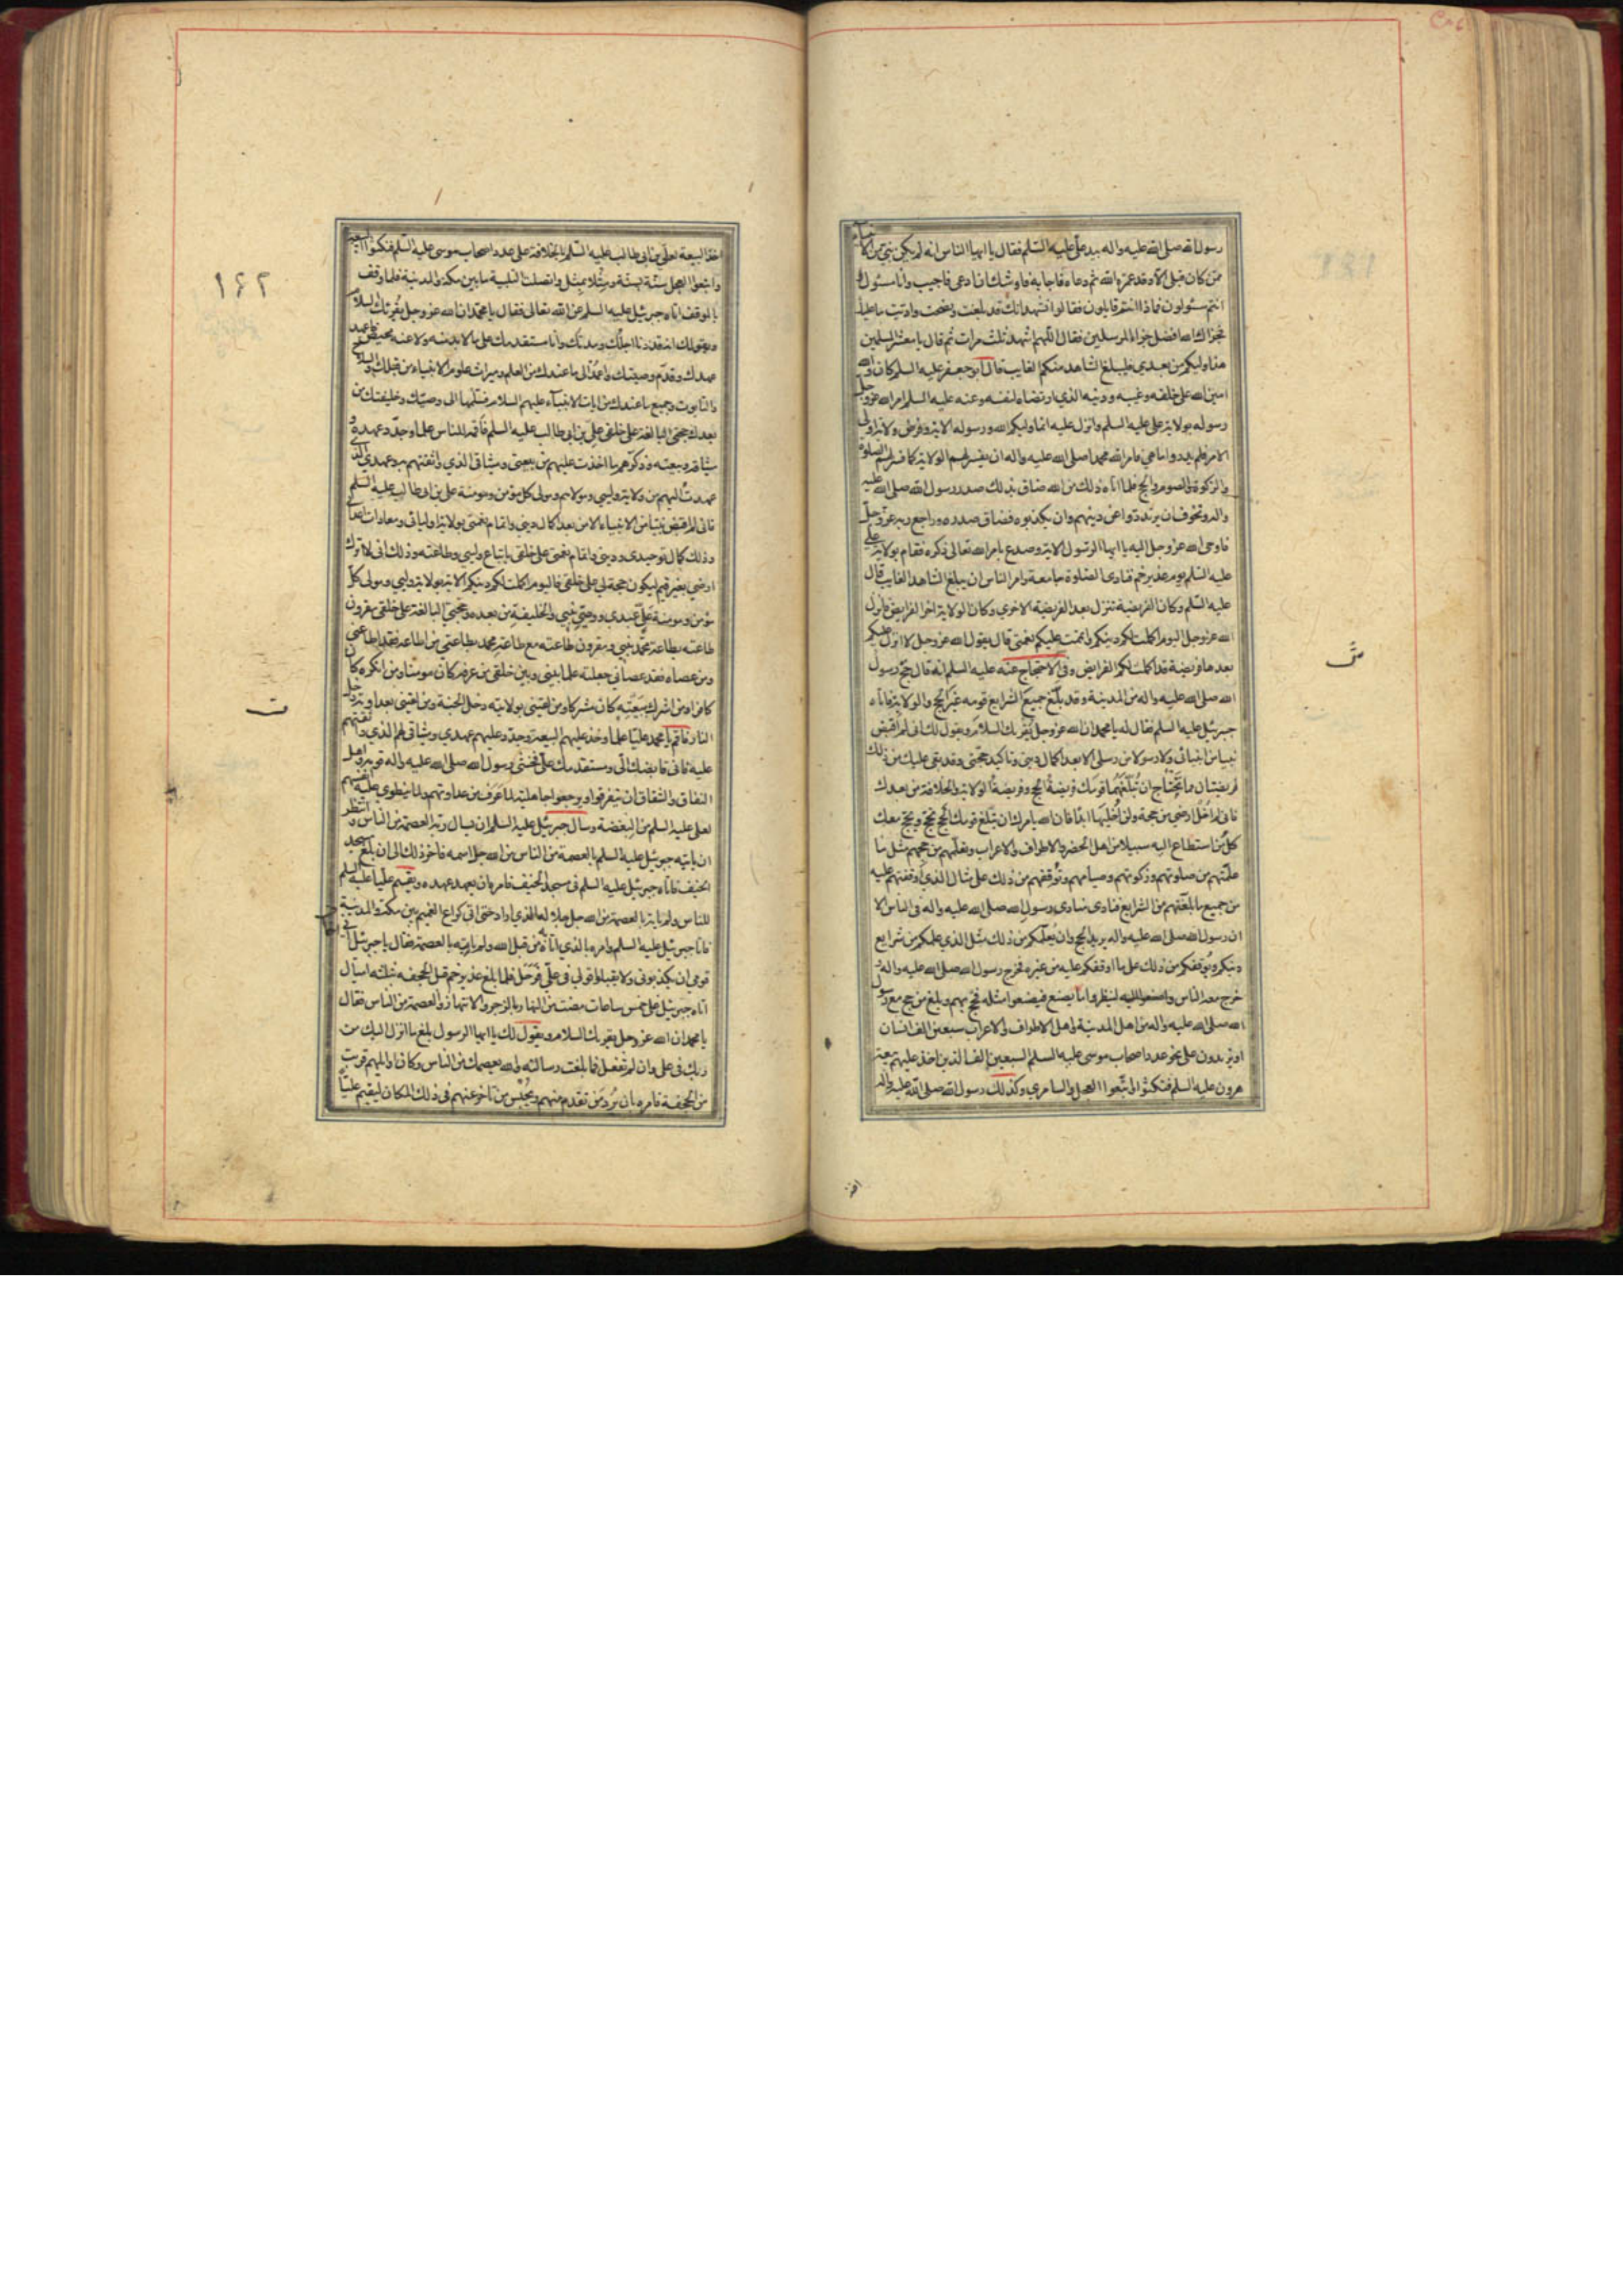 رسول الله صلى الله عليه واله بيد على عليه السلم فقال يا ايها الناس انه لم يكن نبى من الانبياء
ممن كان قبلى الا وقد عمره الله ثم دعاه فاجابه فاوشك ان ادعى فاجيب وانا مسئول و
انتم مسئولون فماذا انتم قايلون فقالوا نشهد انك قد بلغت ونصحت واديت ما عليك
فجزاك الله افضل جزاء المرسلين فقال اللهم اشهد ثلث مرات ثم قال يا معشر المسلمين
هذا وليكم من بعدى فليبلغ الشاهد منكم الغايب قال ابو جعفر عليه السلم كان والله
امين الله على خلقه وغيبه ودينه الذي ارتضاه لنفسه وعنه عليه السلم امر الله عز وجل
رسوله بولاية على عليه السلم وانزل عليه انما وليكم الله ورسوله الاية وفرض ولاية اولى
الامر فلم يدروا ما هي فامر الله محمدا صلى الله عليه واله ان يفسر لهم الولاية كما فسر لهم الصلوة
والزكوة والصوم والحج فلما اتاه ذلك من الله ضاق بذلك صدر رسول الله صلى الله عليه
واله وتخوف ان يرتدوا عن دينهم وان يكذبوه فضاق صدره وراجع ربه عز وجل
فاوحى الله عز وجل اليه يا ايها الرسول الاية وصدع بامر الله تعالى ذكره فقام بولاية على
عليه السلم يوم غدير خم فنادى الصلوة جامعة وامر الناس ان يبلغ الشاهد الغايب قال
عليه السلم وكان الفريضة تنزل بعد الفريضة الاخرى وكان الولاية اخر الفرايض فانزل
الله عز وجل اليوم اكملت لكم دينكم واتممت عليكم نعمتى قال يقول الله عز وجل لا انزل عليكم
بعد ها فريضة قد اكملت لكم الفرايض وفى الاحتجاج عنه عليه السلم انه قال حج رسول
الله صلى الله عليه واله من المدينة وقد بلغ جميع الشرايع قومه غير الحج والولاية فاتاه
جبرئيل عليه السلم فقال له يا محمد ان الله عز وجل يقرئك السلام ويقول لك انى لم اقبض
نبيا من انبيائى ولا رسولا من رسلى الا بعد اكمال دينى وتاكيد حجتى وقد بقى عليك من ذلك
فريضتان مما تحتاج ان تبلغهما قومك فريضة الحج وفريضة الولاية والخلافة من بعدك
فانى لم اخل ارضي من حجة ولن اخليها ابدا فان الله يامرك ان تبلغ قومك الحج تحج ويحج معك
كل من استطاع اليه سبيلا من اهل الحضر والاطراف والاعراب وتعلمهم من حجهم مثل ما
علمتهم من صلوتهم وزكوتهم وصيامهم وتوقفهم من ذلك على مثال الذي اوقفتهم عليه
من جميع ما بلغتهم من الشرايع فنادى منادى رسول الله صلى الله عليه واله فى الناس الا
ان رسول الله صلى الله عليه واله يريد الحج وان يعلمكم من ذلك مثل الذي علمكم من شرايع
دينكم ويوقفكم من ذلك على ما اوقفكم عليه من غيره فخرج رسول الله صلى الله عليه واله و
خرج معه الناس واصغوا اليه لينظروا ما يصنع فيصنعوا مثله فحج بهم وبلغ من حج مع رسول
الله صلى الله عليه واله من اهل المدينة واهل الاطراف والاعراب سبعين الف انسان
او يزيدون على نحو عدد اصحاب موسى عليه السلم السبعين الف الذين اخذ عليهم بيعة
هرون عليه السلم فنكثوا واتبعوا العجل والسامرى وكذلك رسول الله صلى الله عليه واله
اخذ
١٦٢
اخذ البيعة لعلى بن ابى طالب عليه السلم بالخلافة على عدد اصحاب موسى عليه السلم فنكثوا البيعة
واتبعوا العجل سنة بسنة ومثلا بمثل واتصلت التلبية ما بين مكة والمدينة فلما وقف
بالموقف اتاه جبرئيل عليه السلم عن الله تعالى فقال يا محمد ان الله عز وجل يقرئك السلام
ويقول لك انه قد دنا اجلك ومدتك وانا مستقدمك على ما لا بد منه ولا عنه محيص فاعهد
عهدك وقدم وصيتك واعمد الى ما عندك من العلم وميراث علوم الانبياء من قبلك والسلاح
والتابوت وجميع ما عندك من ايات الانبياء عليهم السلام فسلمها الى وصيك وخليفتك من
بعدك حجتى البالغة على خلقى على بن ابى طالب عليه السلم فاقمه للناس علما وجدد عهده و
ميثاقه وبيعته وذكرهم ما اخذت عليهم من بيعتى وميثاقى الذي واثقتهم به وعهدي الذى
عهدت اليهم من ولاية وليى ومولاهم ومولى كل مؤمن ومؤمنة على بن ابى طالب عليه السلم
فانى لم اقبض نبيا من الانبياء الا من بعد اكمال دينى واتمام نعمتى بولاية اوليائى ومعادات اعدائى
وذلك كمال توحيدى ودينى واتمام نعمتى على خلقى باتباع وليى وطاعته وذلك انى لا اترك
ارضي بغير قيم ليكون حجة لى على خلقى فاليوم اكملت لكم دينكم الاية بولاية وليى ومولى كل
مؤمن ومؤمنة على عبدى ووصى نبيى والخليفة من بعده وحجتى البالغة على خلقى مقرون
طاعته بطاعة محمد نبيى ومقرون طاعته مع طاعة محمد بطاعتى من اطاعه فقد اطاعنى
ومن عصاه فقد عصانى جعلته علما بينى وبين خلقى من عرفه كان مومنا ومن انكره كان
كافرا ومن اشرك ببيعته كان مشركا ومن لقينى بولايته دخل الجنة ومن لقينى بعداوته دخل
النار فاقم يا محمد عليا علما وخذ عليهم البيعة وجدد عليهم عهدي وميثاقى لهم الذي واثقتهم
عليه فانى قابضك الى ومستقدمك على فخشى رسول الله صلى الله عليه واله قومه واهل
النفاق والشقاق ان يتفرقوا ويرجعوا جاهلية لما عرف من عداوتهم ولما ينطوى عليه انفسهم
لعلى عليه السلم من البغضة وسال جبرئيل عليه السلم ان يسال ربه العصمة من الناس وانتظر
ان ياتيه جبرئيل عليه السلم بالعصمة من الناس من الله جل اسمه فاخر ذلك الى ان بلغ مسجد
الخيف فاتاه جبرئيل عليه السلم فى مسجد الخيف فامره بان يعهد عهده ويقيم عليا عليه السلم
للناس ولم ياته بالعصمة من الله جل جلاله بالذي اراد حتى اتى كراع الغميم بين مكة والمدينة
فاتاه جبرئيل عليه السلم وامره بالذى اتاه من قبل الله ولم ياته بالعصمة فقال يا جبرئيل انى
قومى ان يكذبونى ولا يقبلوا قولى فى على فرحل فلما بلغ غدير خم قبل الجحفه بثلثه اميال
اتاه جبرئيل على خمس ساعات مضت من النهار بالزجر والانتهار والعصمة من الناس فقال
يا محمد ان الله عز وجل يقرئك السلام ويقول لك يا ايها الرسول بلغ ما انزل اليك من
ربك فى على وان لم تفعل فما بلغت رسالته والله يعصمك من الناس وكان اوايلهم قربت
من الجحفة فامره بان يرد من تقدم منهم ويحبس من تاخر عنهم فى ذلك المكان ليقيم عليا